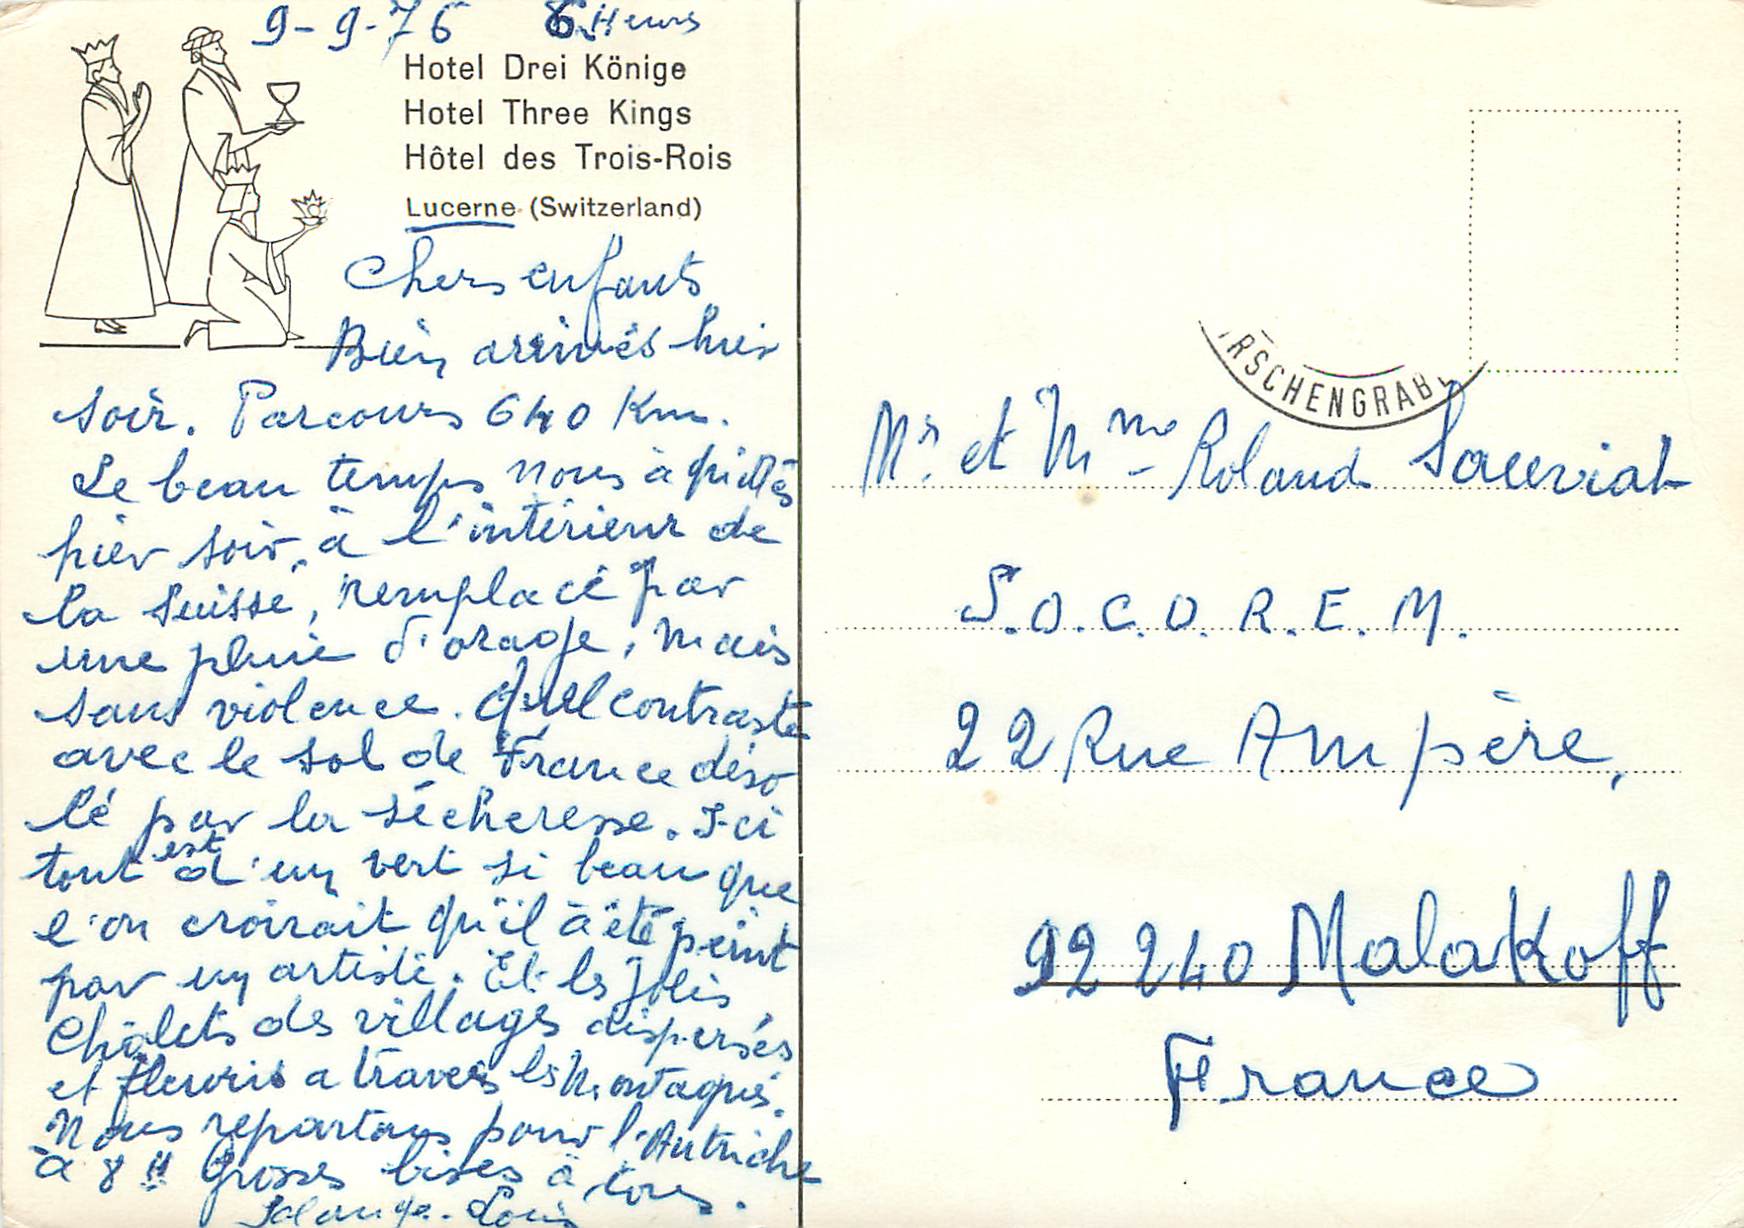 9-9-76 6 Heures
Hotel Drei Könige
Hotel Three Kings
Hôtel des Trois-Rois
Lucerne (Switzerland)
Chers enfants
Bien arrivés hier
soir. Parcours 640 Km.
Le beau temps nous à quittés
hier soir, à l'intérieur de
la Suisse, remplacé par
une pluie d'orage, mais
sans violence. Quel contraste
avec le sol de France déso
lé par la sécheresse. Ici
tout est d'un vert si beau que
l'on croirait qu'il à été peint
par un artiste. Et les jolis
châlets des villages dispersés
et fleuris a travers les Montagnes.
Nous repartons pour l'Autriche
à 8 H Grosses bises à tous.
Solange - Louis
RSCHENGRAB
Mr et Mme Roland Sauviat
S.O.C.O.R.E.M.
22 Rue Ampère,
92 240 Malakoff
France